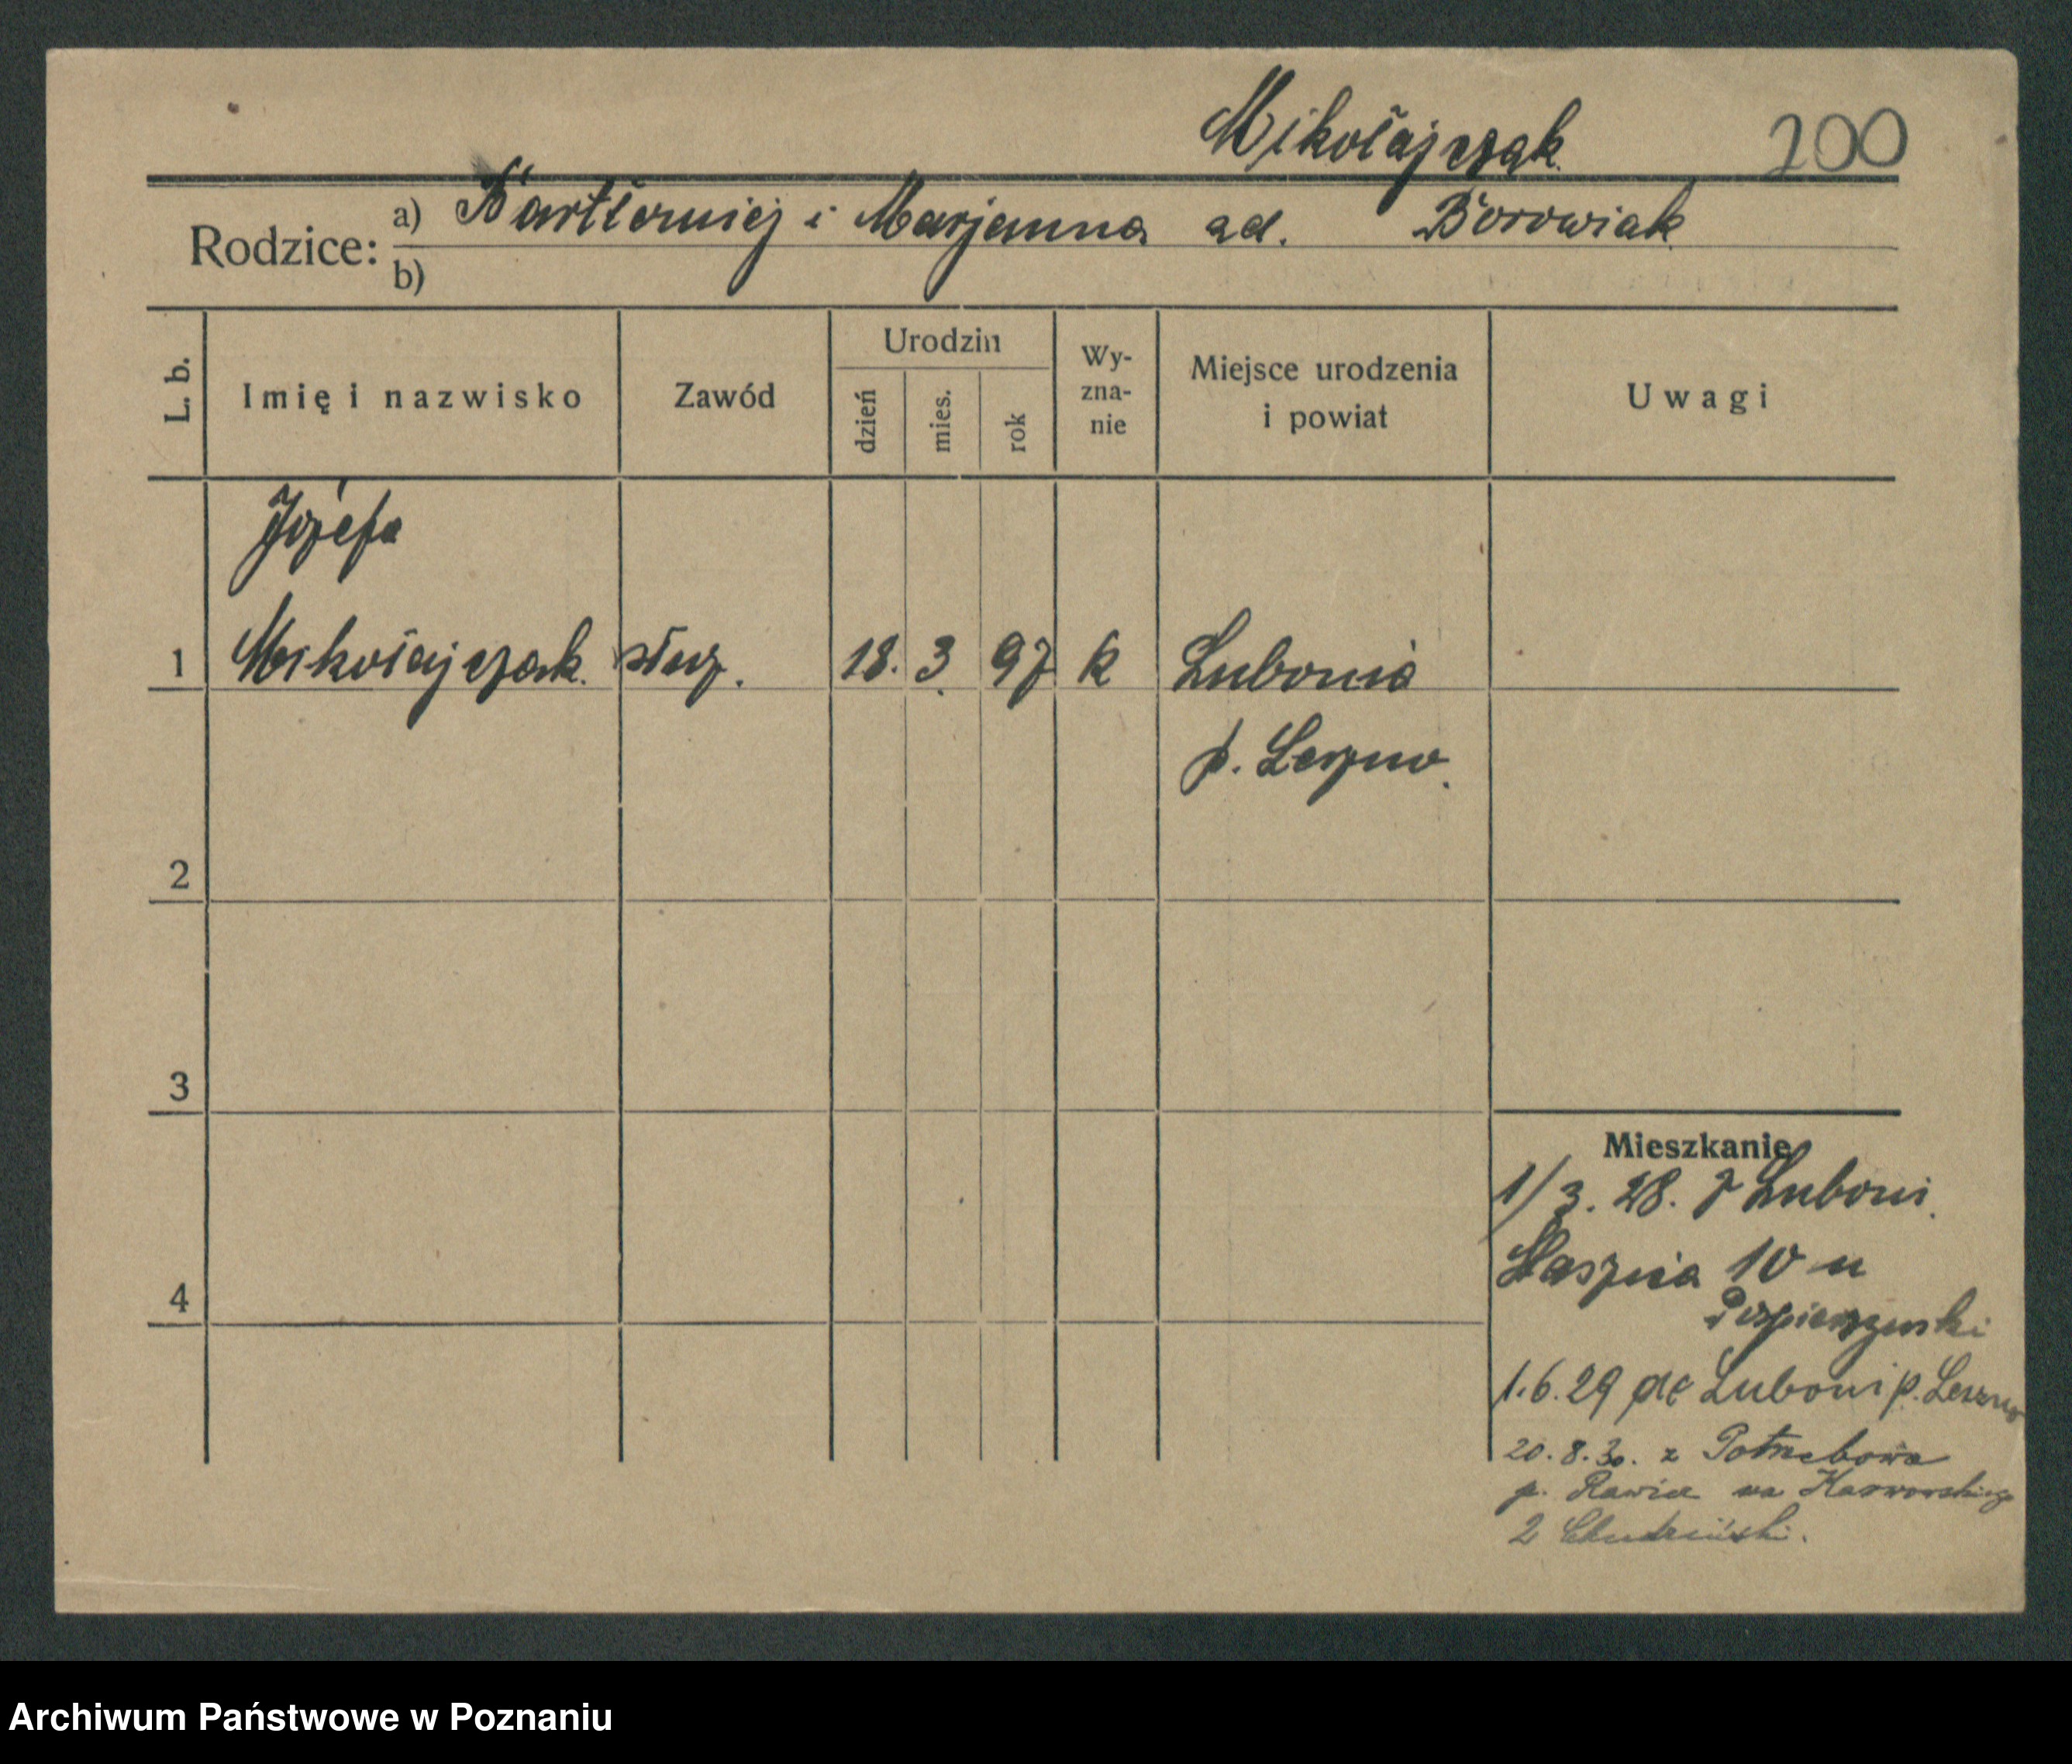 Mikołajczak 200
Rodzice: a) Bartłomiej i Marjanna zd. Borowiak
b)
L. b. Imię i nazwisko Zawód Urodzin dzień mies. rok Wy-zna-nie Miejsce urodzenia i powiat Uwagi
Józefa
1 Mikołajczak służ. 18. 3. 97 k Lubonia
p. Leszno.
2
3
Mieszkanie
1/3. 28. z Luboni.
10 u
4
1.6.29 do Luboni p. Leszno
20.8.30. z Potrzebowa
p. Rawicz na
2 Chudziński.
Archiwum Państwowe w Poznaniu